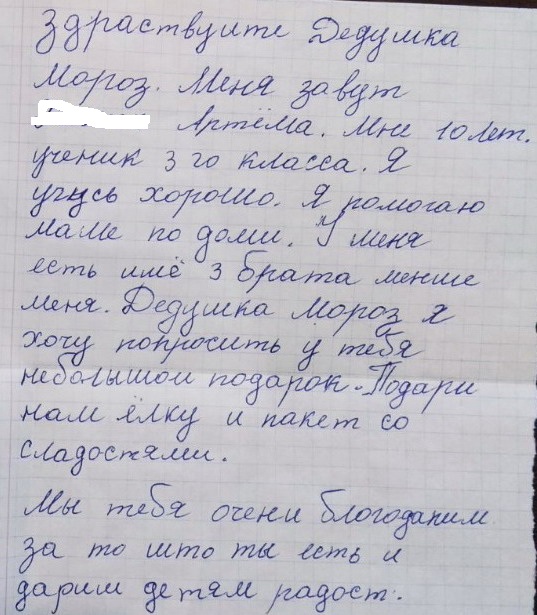 Здраствуите Дедушка
Мороз. Меня завут
Артёма. Мне 10 лет.
ученик 3 го класса. Я
учусь хорошо. Я помогаю
маме по доми. У меня
есть имё 3 брата менше
меня. Дедушка Мороз я
хочу попросить у тебя
неболышои подарок. Подари
нам ёлку и пакет со
сладостями.
Мы тебя очени благоданим
за то што ты есть и
дарим детям радост.